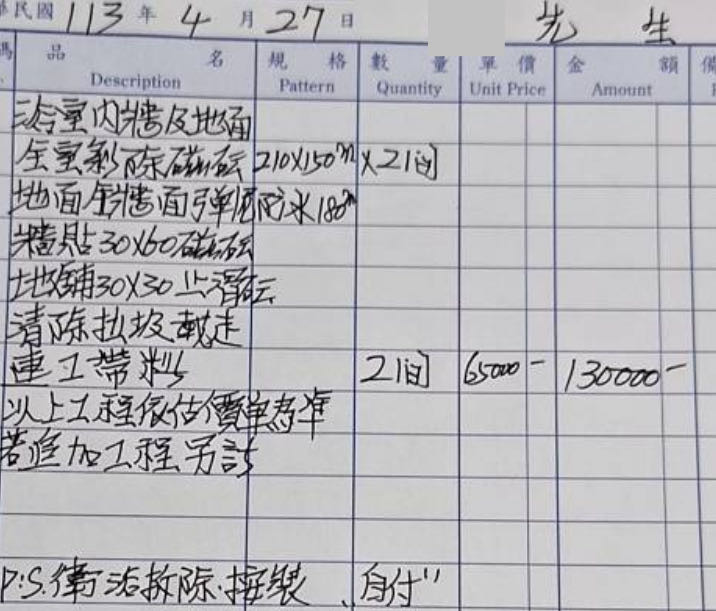 民國 113 年 4 月 27 日 先生
品名 規格 數量 單價 金額
Description Pattern Quantity Unit Price Amount
浴室內牆及地面
全室剝除磁磚 210X150 X2间
地面 牆面弹 防水180
牆貼30X60磁磚
地鋪30X30止滑磚
清除垃圾載走
連工帶料 2间 65000- 130000-
以上工程依估價單為準
若追加工程另計
P.S.衛浴拆除.按裝、自付"